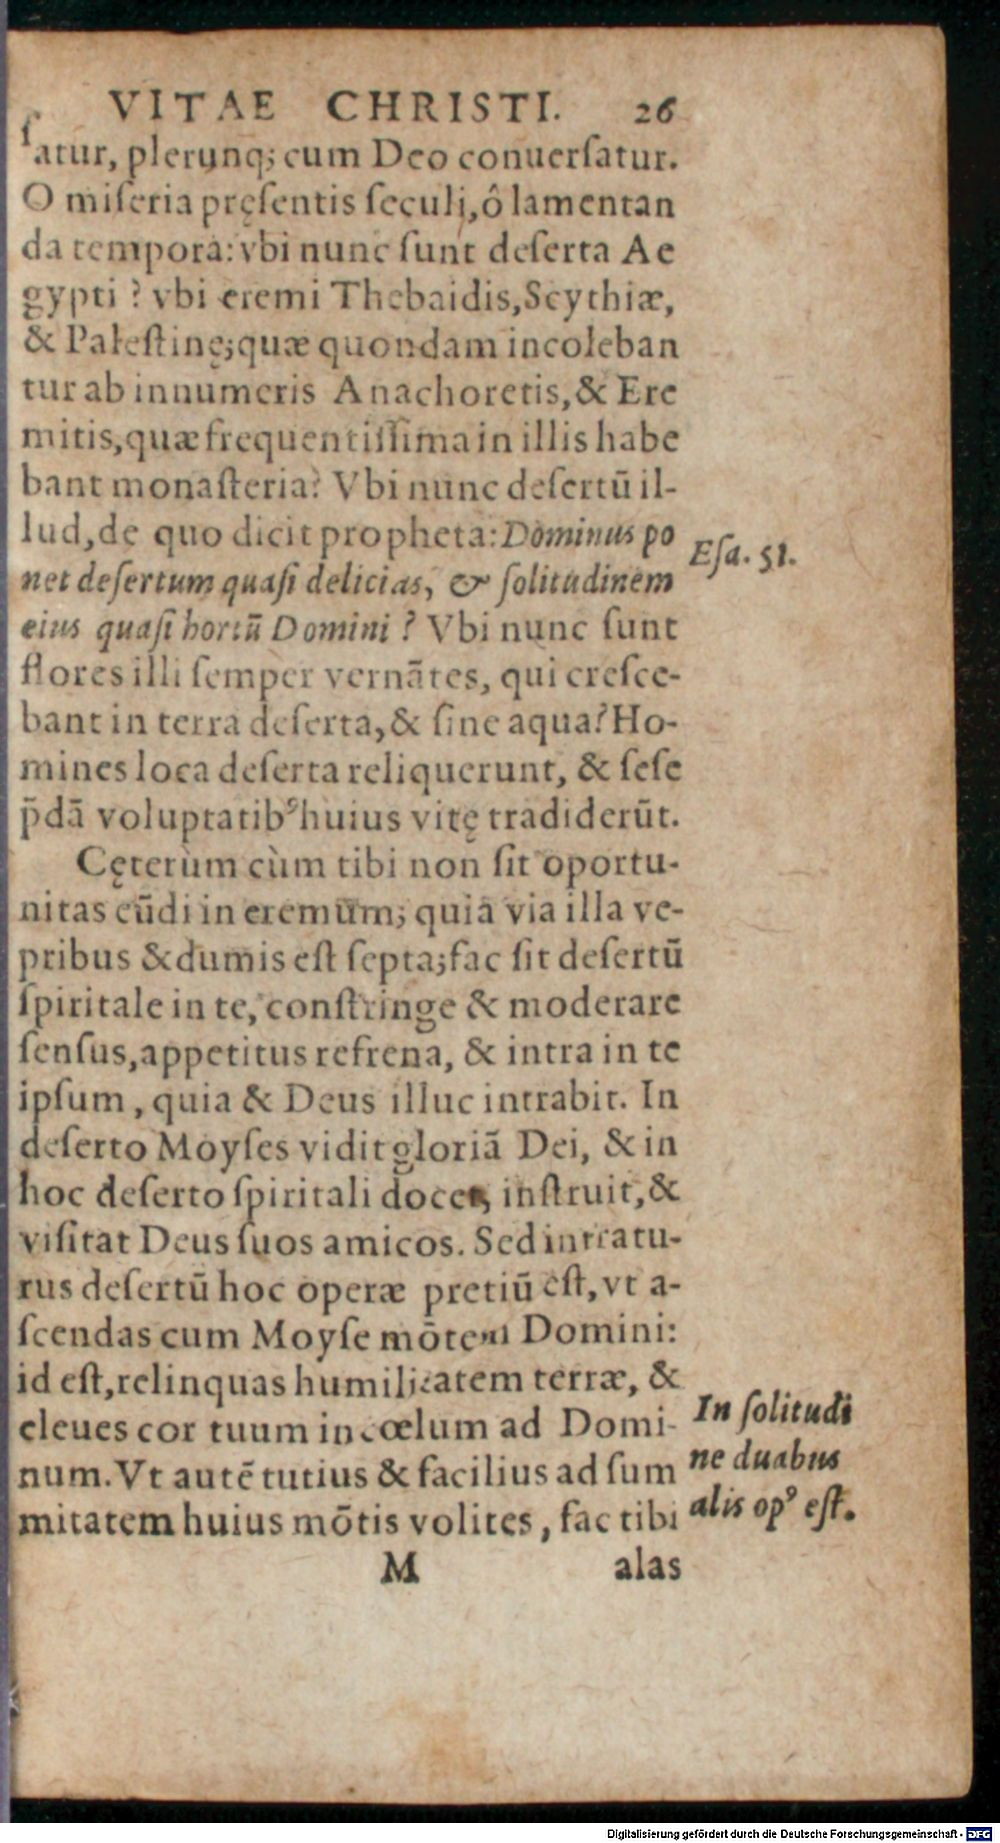 VITAE CHRISTI. 26
ſatur, plerunq; cum Deo conuerſatur.
O miſeria pręſentis ſeculi, ô lamentan
da tempora: vbi nunc ſunt deſerta Ae
gypti? vbi eremi Thebaidis, Scythiæ,
& Paleſtinę; quæ quondam incoleban
tur ab innumeris Anachoretis, & Ere
mitis, quæ frequentiſſima in illis habe
bant monaſteria? Vbi nunc deſertū il-
lud, de quo dicit propheta: Dominus po
Eſa. 51.
net deſertum quaſi delicias, & ſolitudinem
eius quaſi hortū Domini? Vbi nunc ſunt
flores illi ſemper vernātes, qui creſce-
bant in terra deſerta, & ſine aqua? Ho-
mines loca deſerta reliquerunt, & ſeſe
p̄dā voluptatibꝰ huius vitę tradiderūt.
Cęterùm cùm tibi non ſit oportu-
nitas eūdi in eremum; quia via illa ve-
pribus & dumis eſt ſepta; fac ſit deſertū
ſpiritale in te, conſtringe & moderare
ſenſus, appetitus refrena, & intra in te
ipſum, quia & Deus illuc intrabit. In
deſerto Moyſes vidit gloriā Dei, & in
hoc deſerto ſpiritali docet, inſtruit, &
viſitat Deus ſuos amicos. Sed intratu-
rus deſertū hoc operæ pretiū eſt, vt a-
ſcendas cum Moyſe mōtem Domini:
id eſt, relinquas humilitatem terræ, &
eleues cor tuum in cœlum ad Domi-
num. Vt autē tutius & facilius ad ſum
mitatem huius mōtis volites, fac tibi
In ſolitudi
ne duabus
alis opꝰ eſt.
M alas
Digitalisierung gefördert durch die Deutsche Forschungsgemeinschaft - DFG